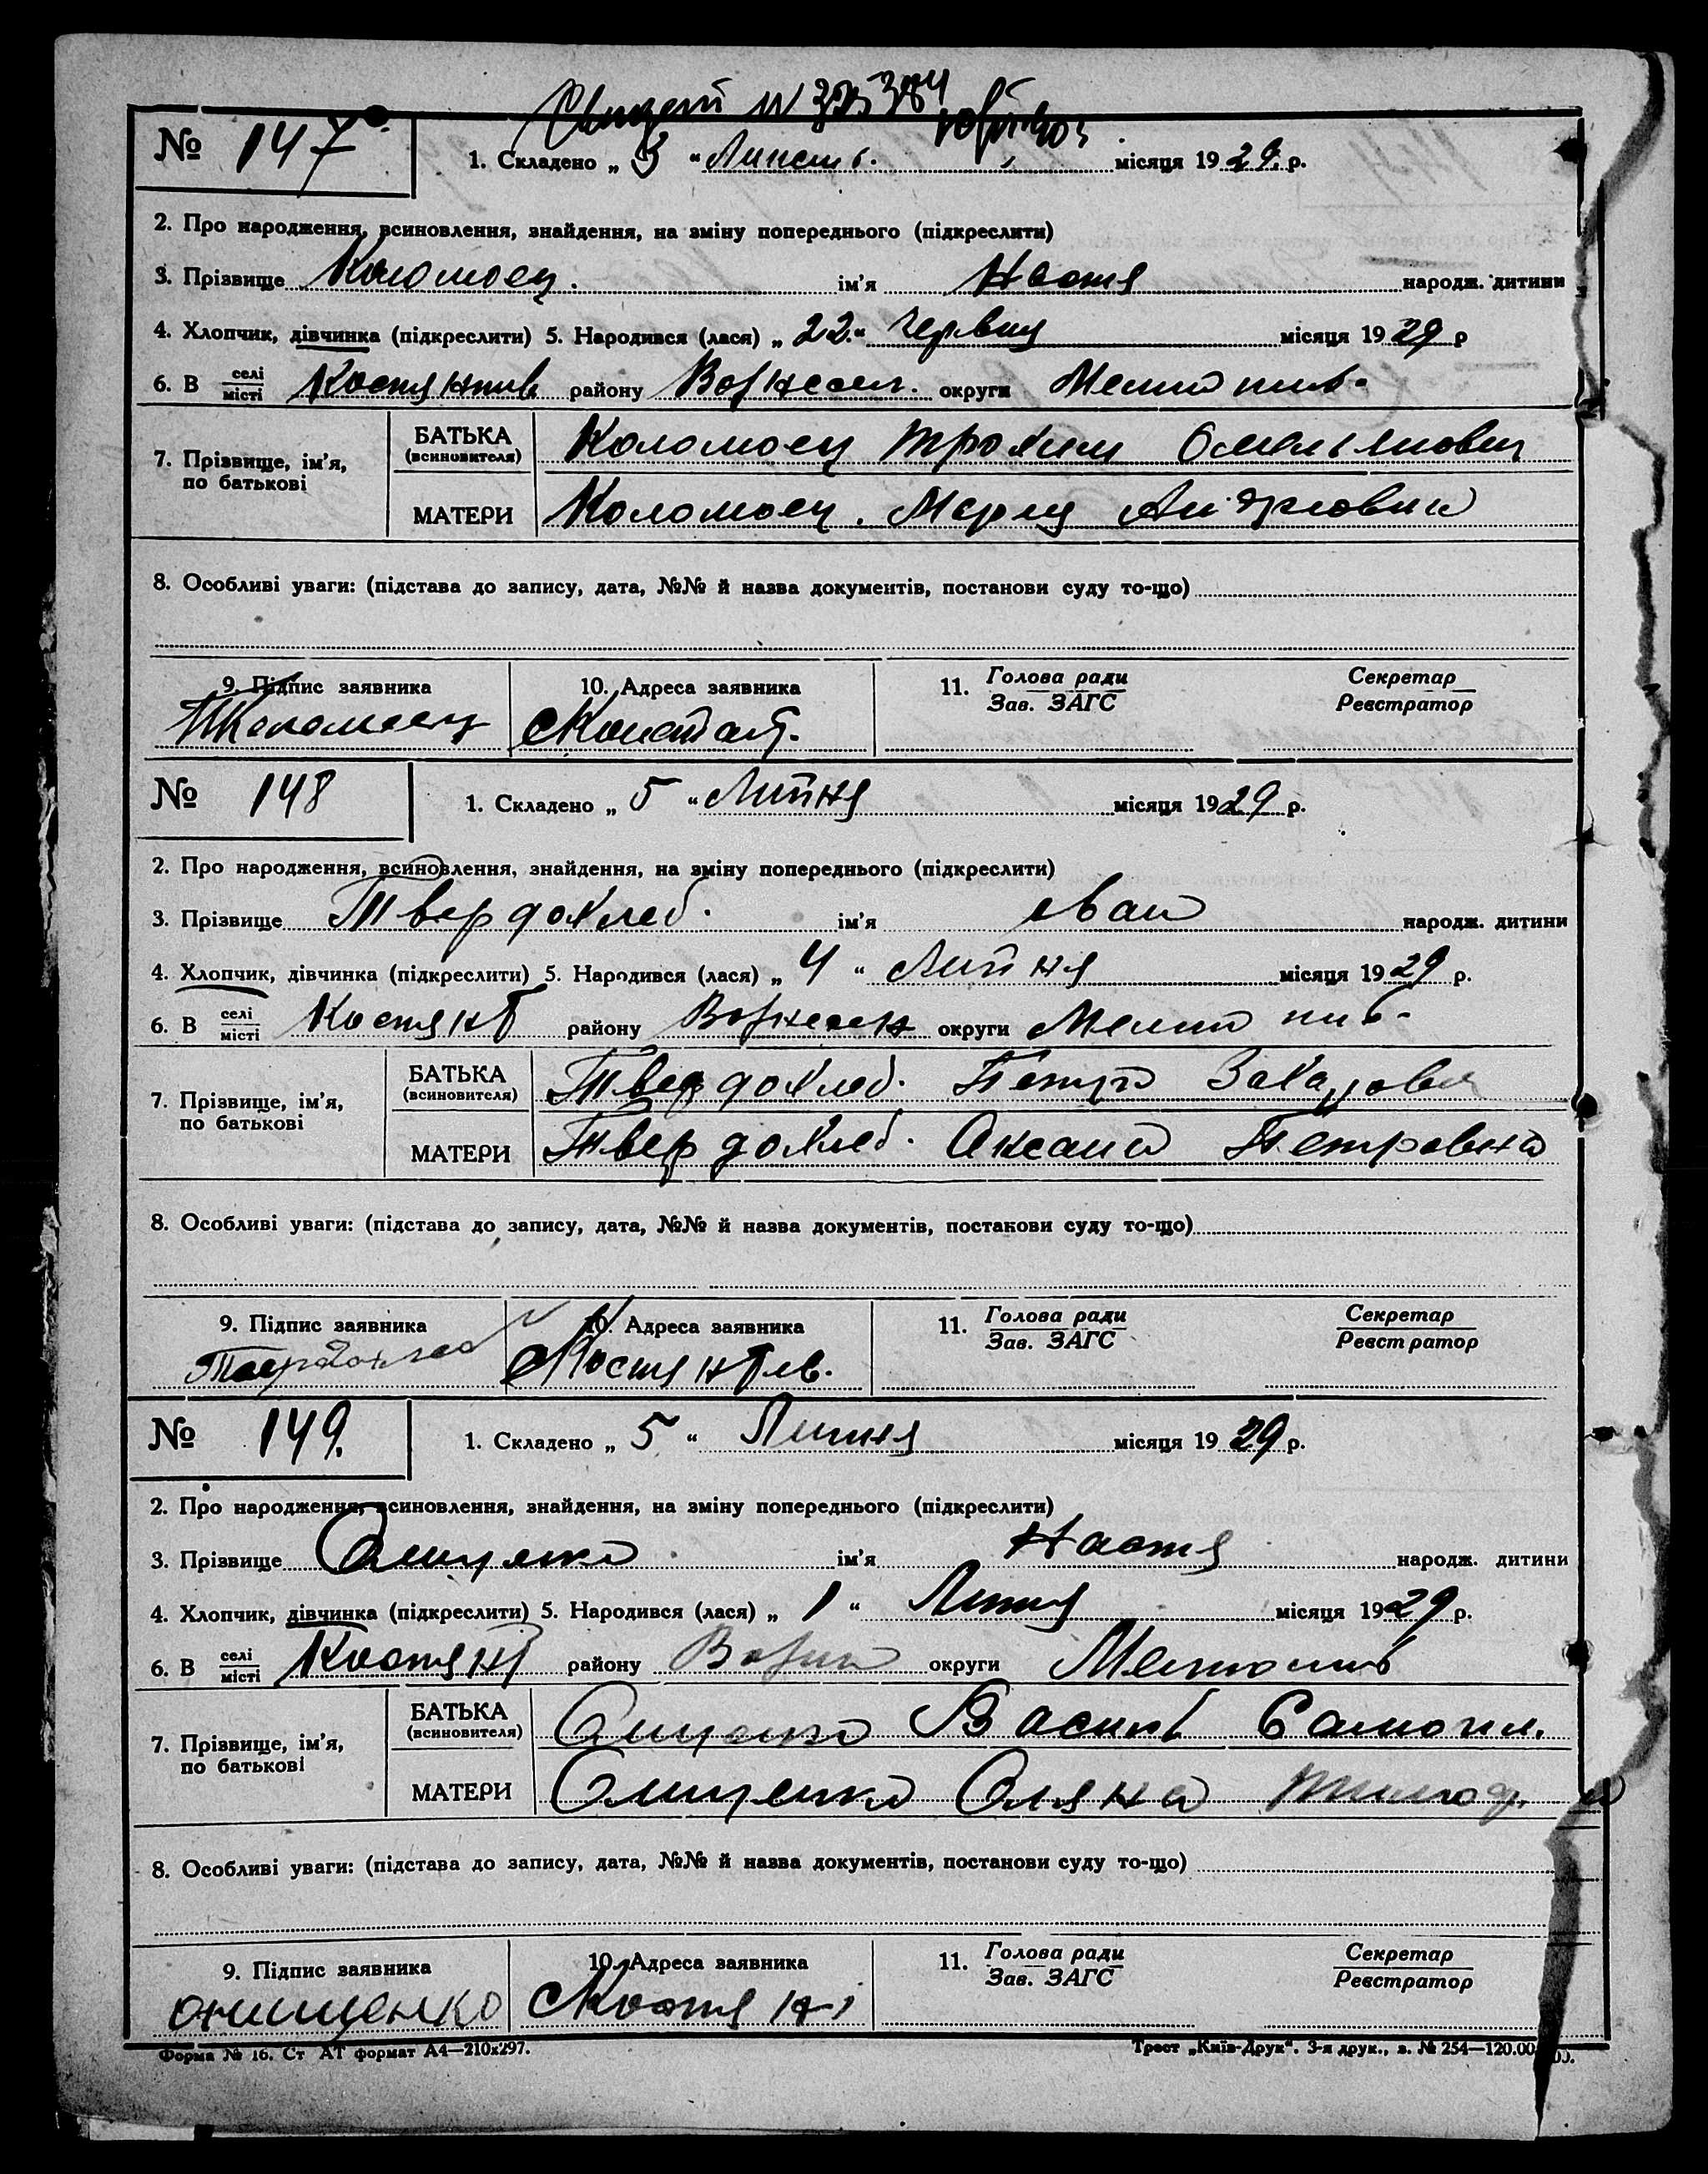 № 147
1. Складено „ 3 “ місяця 1929. р.
2. Про народження, всиновлення, знайдення, на зміну попереднього (підкреслити)
3. Прізвище Коломоец. ім'я Настя народж. дитини
4. Хлопчик, дівчинка (підкреслити) 5. Народився (лася) „ 22 “ Червця місяця 1929 р
6. В селі місті Костянтив району Вознесен. округи Мелитпив.
7. Прізвище, ім'я, по батькові
БАТЬКА (всиновителя) Коломоец Трохим Омельянович
МАТЕРИ Коломоец. Мария
8. Особливі уваги: (підстава до запису, дата, №№ й назва документів, постанови суду то-що)
9. Підпис заявника 10. Адреса заявника 11. Голова ради Зав. ЗАГС Секретар Реєстратор
ТКоломоец
№ 148
1. Складено „ 5 “ Липня місяця 1929 р.
2. Про народження, всиновлення, знайдення, на зміну попереднього (підкреслити)
3. Прізвище Твердохлеб. ім'я Иван народж. дитини
4. Хлопчик, дівчинка (підкреслити) 5. Народився (лася) „ 4 “ Липня місяця 1929 р.
6. В селі місті Костянт району Вознесен округи Мелитпив.
7. Прізвище, ім'я, по батькові
БАТЬКА (всиновителя) Твердохлеб. Петро Захарович
МАТЕРИ Твердохлеб. Оксана Петровна
8. Особливі уваги: (підстава до запису, дата, №№ й назва документів, постанови суду то-що)
9. Підпис заявника 10. Адреса заявника 11. Голова ради Зав. ЗАГС Секретар Реєстратор
Твердохлеб Костянтив.
№ 149.
1. Складено „ 5 “ Липня місяця 1929 р.
2. Про народження, всиновлення, знайдення, на зміну попереднього (підкреслити)
3. Прізвище Онищенко ім'я Настя народж. дитини
4. Хлопчик, дівчинка (підкреслити) 5. Народився (лася) „ 1 “ Липня місяця 1929 р.
6. В селі місті Костянт району округи
7. Прізвище, ім'я, по батькові
БАТЬКА (всиновителя) Онищенко Василь Самоил.
МАТЕРИ Онищенко Оляна Тимоф.
8. Особливі уваги: (підстава до запису, дата, №№ й назва документів, постанови суду то-що)
9. Підпис заявника 10. Адреса заявника 11. Голова ради Зав. ЗАГС Секретар Реєстратор
онищенко
Форма № 16. Ст АТ формат А4—210х297. Трест „Київ-Друк“. 3-я друк., з. № 254—120.00